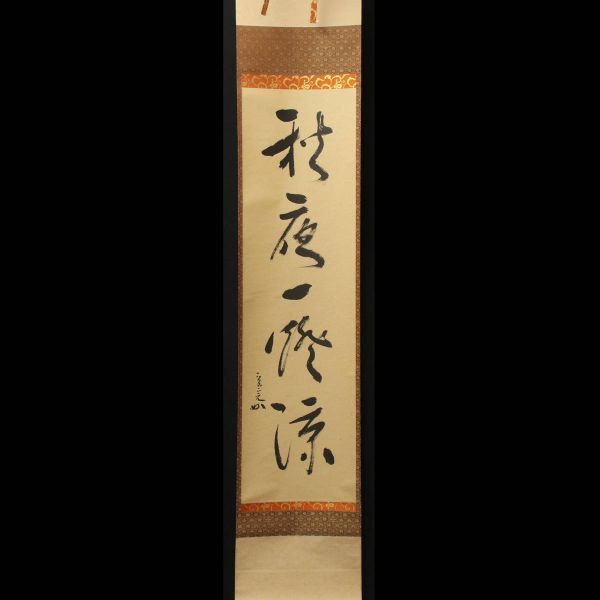 秋夜一燈涼